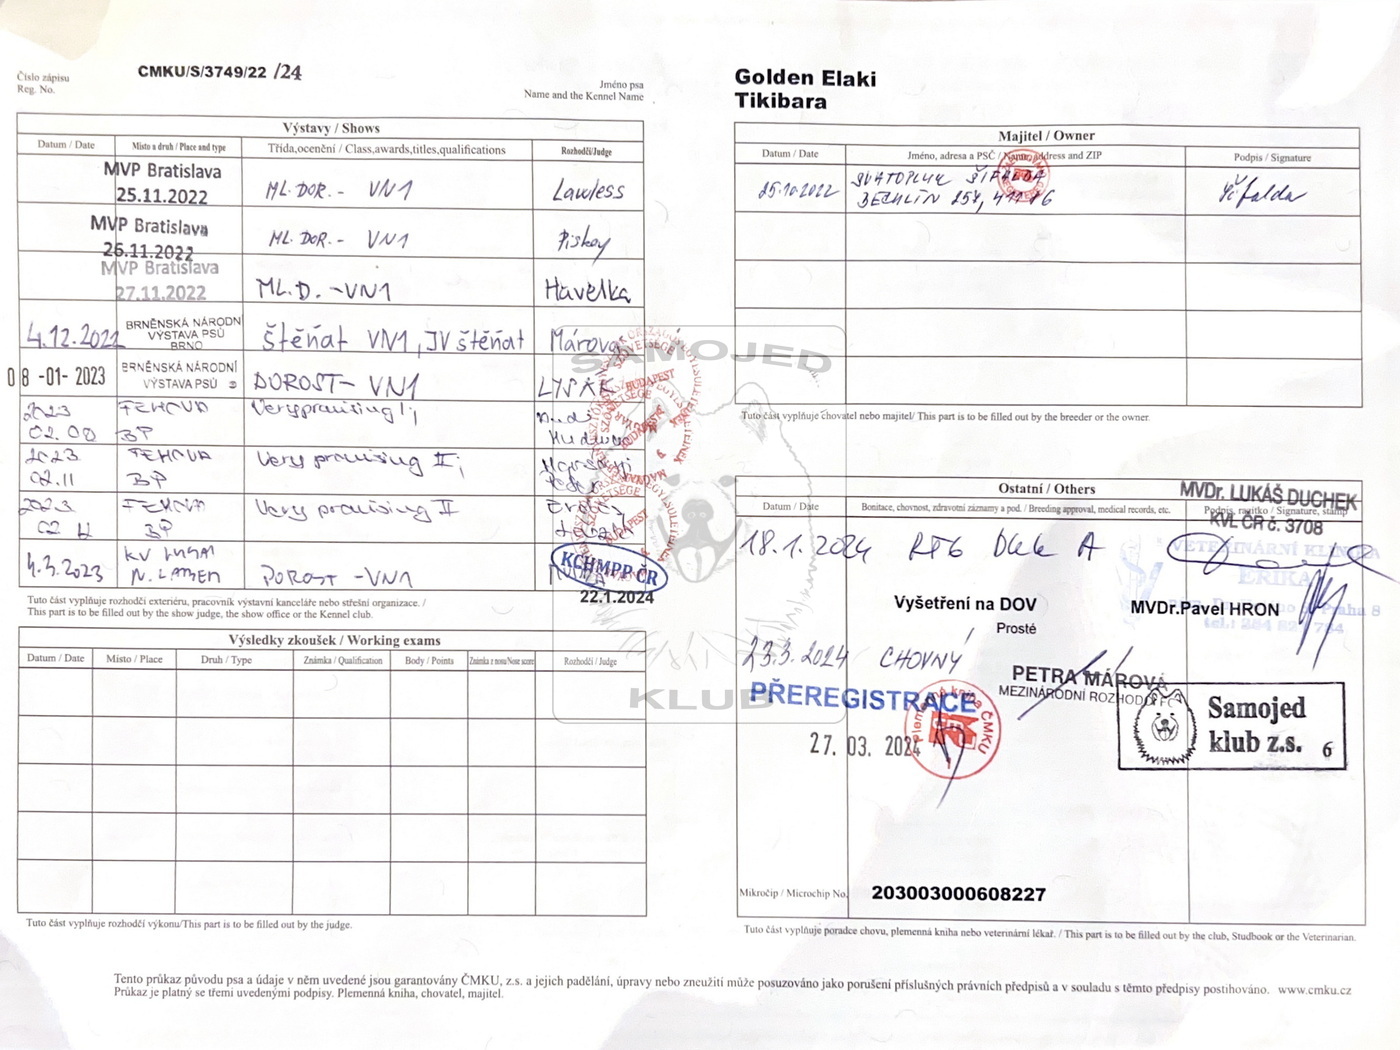 Číslo zápisu
Reg. No.
CMKU/S/3749/22 /24
Jméno psa
Name and the Kennel Name
Golden Elaki
Tikibara
Výstavy / Shows
Datum / Date
Místo a druh / Place and type
Třída,ocenění / Class,awards,titles,qualifications
Rozhodčí/Judge
MVP Bratislava
25.11.2022
ML. DOR. - VN1
Lawless
MVP Bratislava
26.11.2022
ML. DOR. - VN1
Piskay
MVP Bratislava
27.11.2022
ML. D. - VN1
Havelka
4.12.2022
BRNĚNSKÁ NÁRODNÍ
VÝSTAVA PSŮ
BRNO
Štěňat VN1, JV štěňat
Márova
08 -01- 2023
BRNĚNSKÁ NÁRODNÍ
VÝSTAVA PSŮ
DOROST - VN1
LYSÁK
2023
FEHOVA
BP
Very promising I;
2023
02.11
FEHOVA
BP
Very promising II;
2023
02
FEHOVA
BP
Very promising II
4.3.2023
KV
DOROST - VN1
KCHMPP ČR
22.1.2024
Tuto část vyplňuje rozhodčí exteriéru, pracovník výstavní kanceláře nebo střešní organizace. /
This part is to be filled out by the show judge, the show office or the Kennel club.
Výsledky zkoušek / Working exams
Datum / Date
Místo / Place
Druh / Type
Známka / Qualification
Body / Points
Známka z nosu/Nose score
Rozhodčí / Judge
Tuto část vyplňuje rozhodčí výkonu/This part is to be filled out by the judge.
SAMOJED
KLUB
Majitel / Owner
Datum / Date
Jméno, adresa a PSČ / Name, address and ZIP
Podpis / Signature
25.10.2022
SVATOPLUK ŠIFALDA
BECHLÍN 254, 41186
Šifalda
Tuto část vyplňuje chovatel nebo majitel/ This part is to be filled out by the breeder or the owner.
Ostatní / Others
Datum / Date
Bonitace, chovnost, zdravotní záznamy a pod. / Breeding approval, medical records, etc.
Podpis, razítko / Signature, stamp
MVDr. LUKÁŠ DUCHEK
KVL ČR č. 3708
18.1.2024
RTG DKK A
VETERINÁRNÍ KLINIKA
ERIKA
Praha 8
Vyšetření na DOV
Prosté
MVDr.Pavel HRON
23.3.2024
CHOVNÝ
PETRA MÁROVÁ
MEZINÁRODNÍ ROZHODČÍ FCI
PŘEREGISTRACE
27. 03. 2024
Plemenná kniha ČMKU
Samojed
klub z.s. 6
Mikročip / Microchip No.
203003000608227
Tuto část vyplňuje poradce chovu, plemenná kniha nebo veterinární lékař. / This part is to be filled out by the club, Studbook or the Veterinarian.
Tento průkaz původu psa a údaje v něm uvedené jsou garantovány ČMKU, z.s. a jejich padělání, úpravy nebo zneužití může posuzováno jako porušení příslušných právních předpisů a v souladu s těmto předpisy postihováno. www.cmku.cz
Průkaz je platný se třemi uvedenými podpisy. Plemenná kniha, chovatel, majitel.